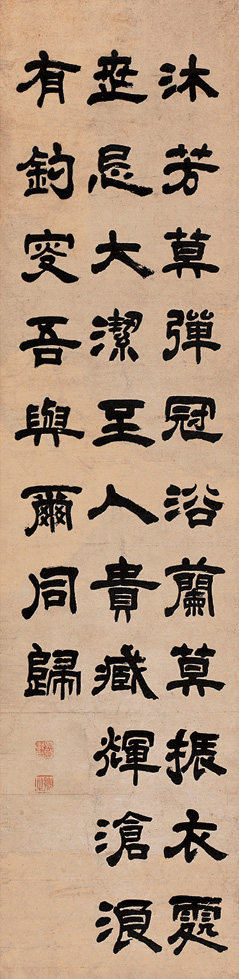 沐芳莫彈冠浴蘭莫振衣處
世忌大潔至人貴臧輝滄浪
有釣叜吾與爾同歸